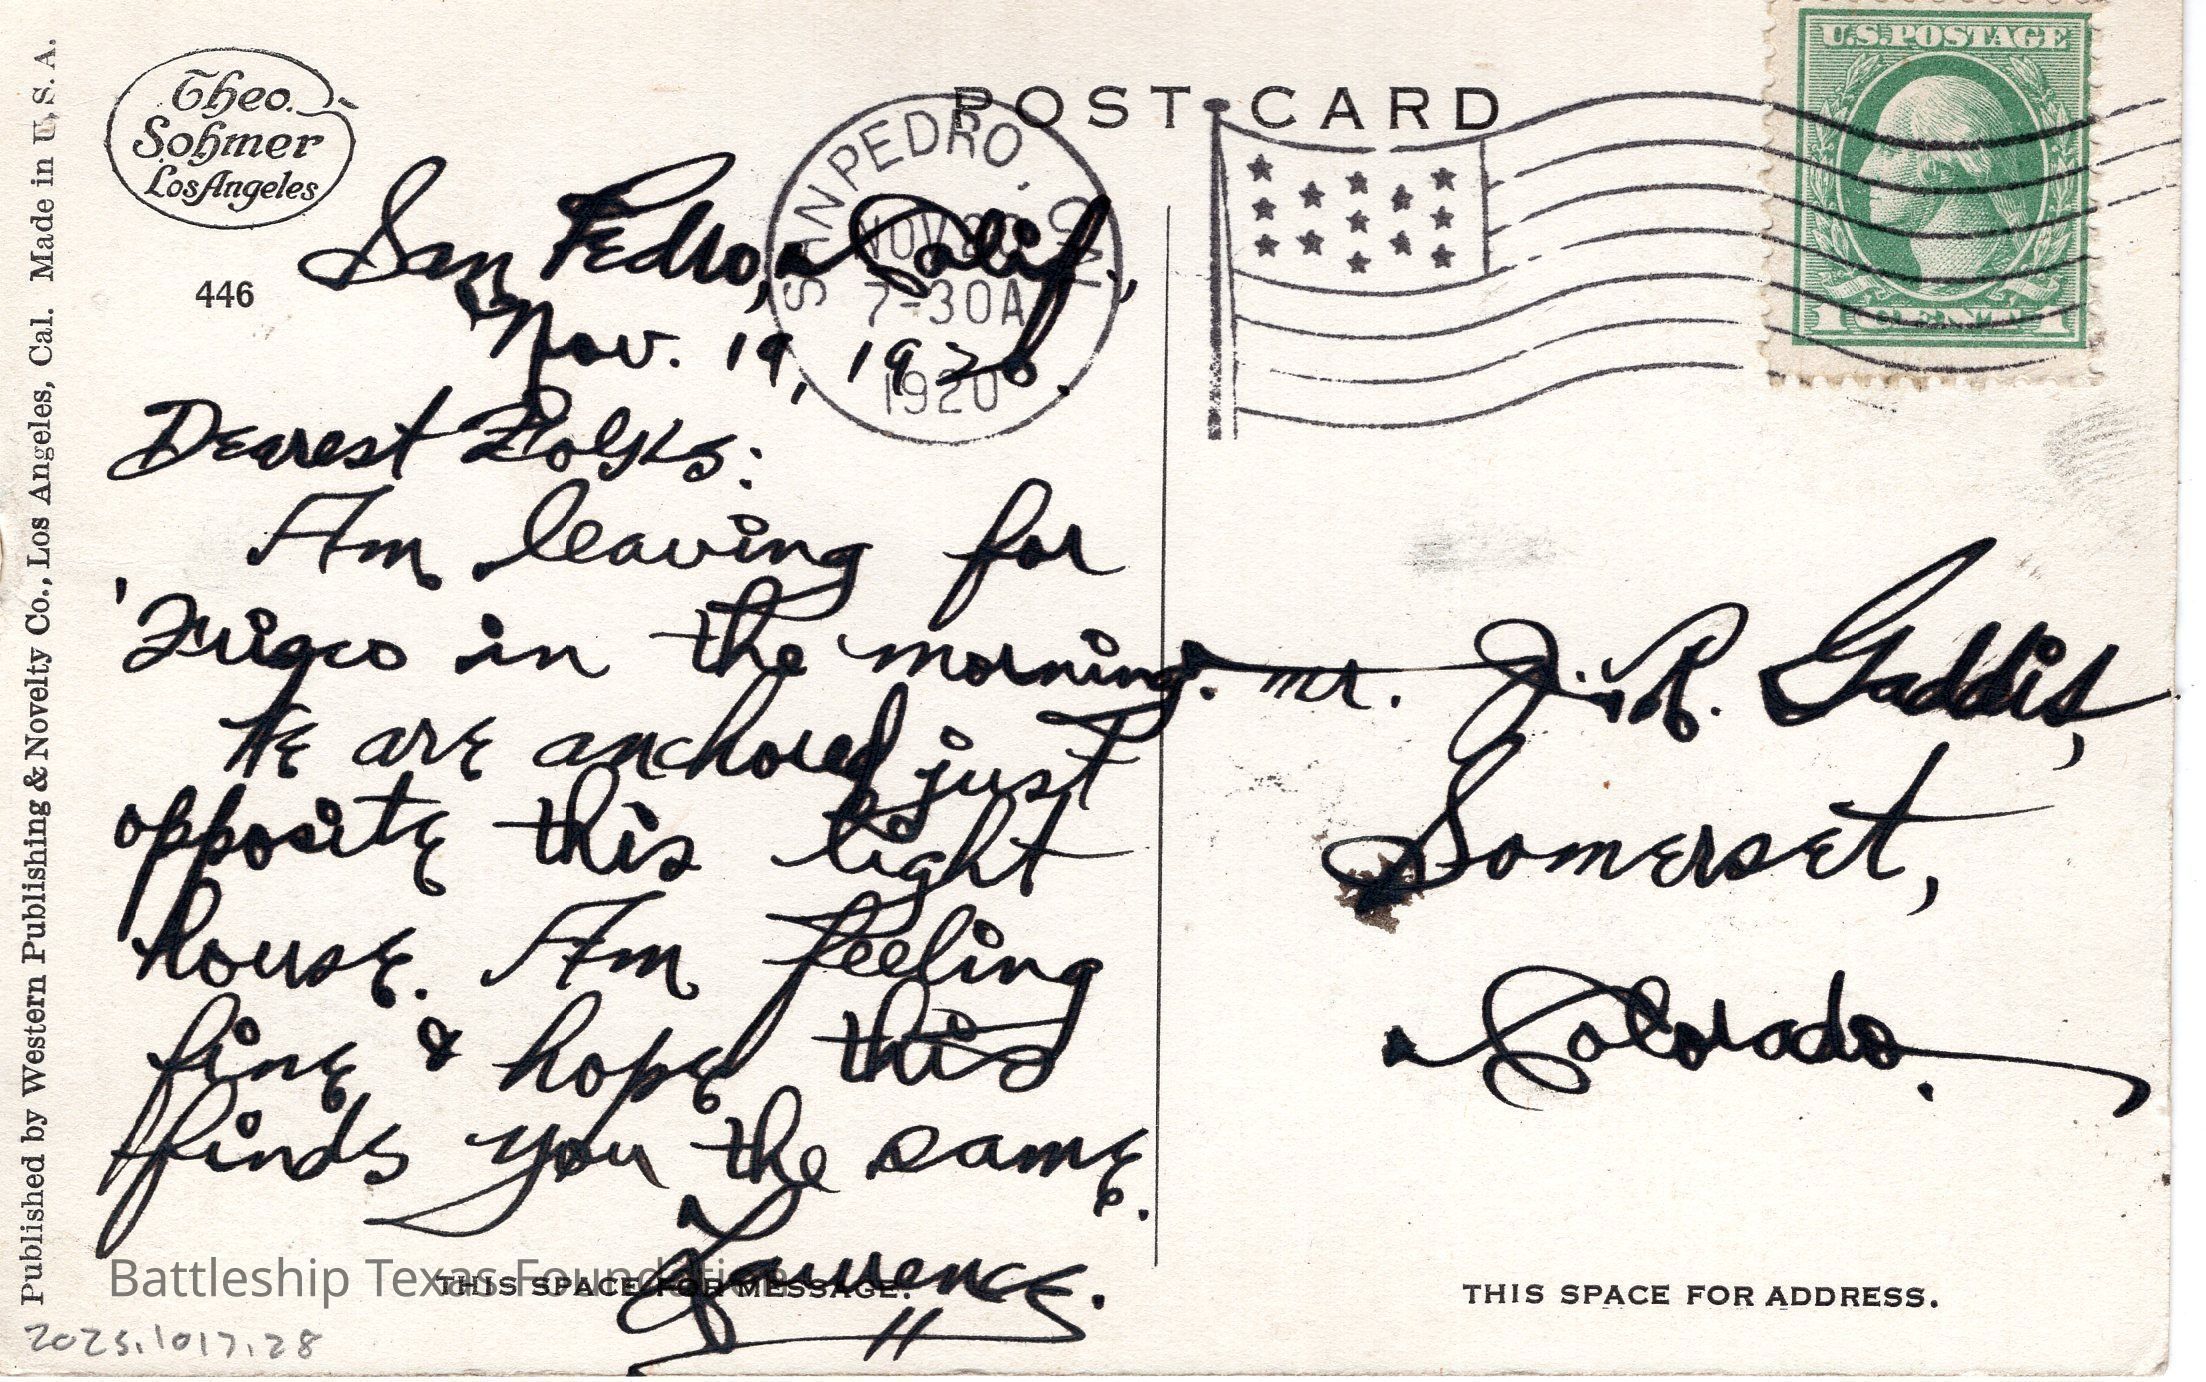 Published by Western Publishing & Novelty Co., Los Angeles, Cal. Made in U. S. A.
Theo.
Sohmer
Los Angeles
446
POST CARD
SAN PEDRO, CAL
NOV
7-30A
1920
U.S. POSTAGE
1 CENT 1
San Pedro, Calif.,
Nov. 19, 1920.
Dearest Folks:
Am leaving for
'Frisco in the morning.
We are anchored just
opposite this light
house. Am feeling
fine & hope this
finds you the same.
Lawrence.
Mr. J. R. Gaddis,
Somerset,
Colorado.
THIS SPACE FOR MESSAGE.
THIS SPACE FOR ADDRESS.
Battleship Texas Foundation
2023.1017.28